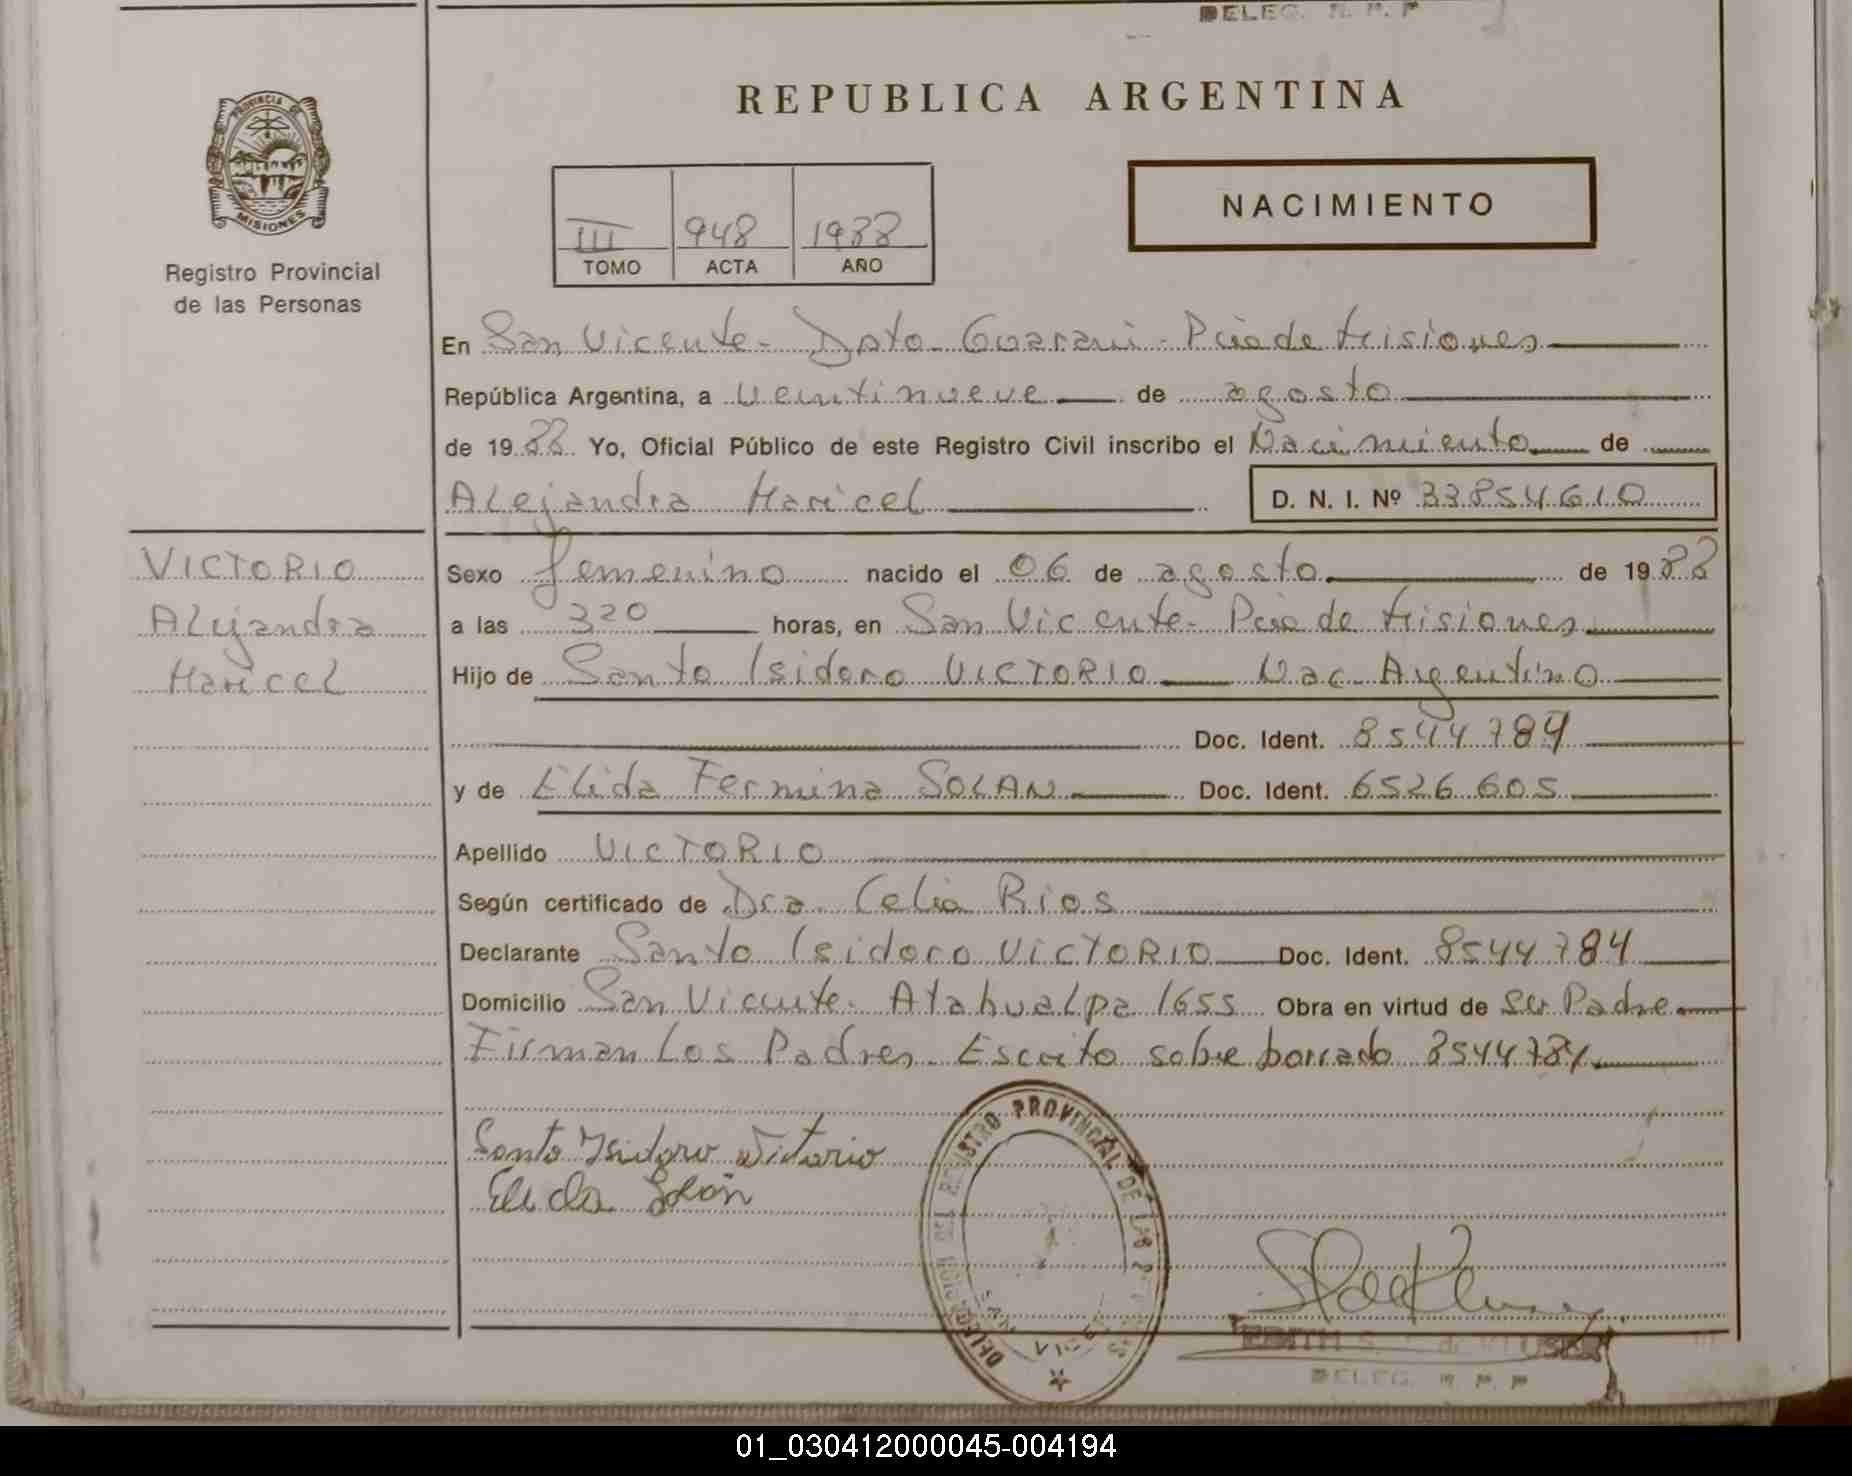 DELEG. R. P. P
REPUBLICA ARGENTINA
PROVINCIA DE
MISIONES
Registro Provincial
de las Personas
III 948 1988
TOMO ACTA AÑO
NACIMIENTO
En San Vicente - Dpto Guarani - Pcia de Misiones
República Argentina, a veintinueve de agosto
de 1988 Yo, Oficial Público de este Registro Civil inscribo el Nacimiento de
Alejandra Maricel D. N. I. Nº 33854610
VICTORIO
Alejandra
Maricel
Sexo femenino nacido el 06 de agosto de 1988
a las 320 horas, en San Vicente - Pcia de Misiones
Hijo de Santo Isidoro VICTORIO Nac. Argentino
Doc. Ident. 8544784
y de Elida Fermina SOLAN Doc. Ident. 6526605
Apellido VICTORIO
Según certificado de Dra Celia Rios
Declarante Santo Isidoro VICTORIO Doc. Ident. 8544784
Domicilio San Vicente - Atahualpa 1655 Obra en virtud de su Padre
Firman Los Padres. Escrito sobre borrado 8544784
Santo Isidoro Victorio
Elida Solan
DELEGACION DEL REGISTRO PROVINCIAL DE LAS PERSONAS
SAN VICENTE
EDITH S. de KLUSER
DELEG. R. P. P
01_030412000045-004194